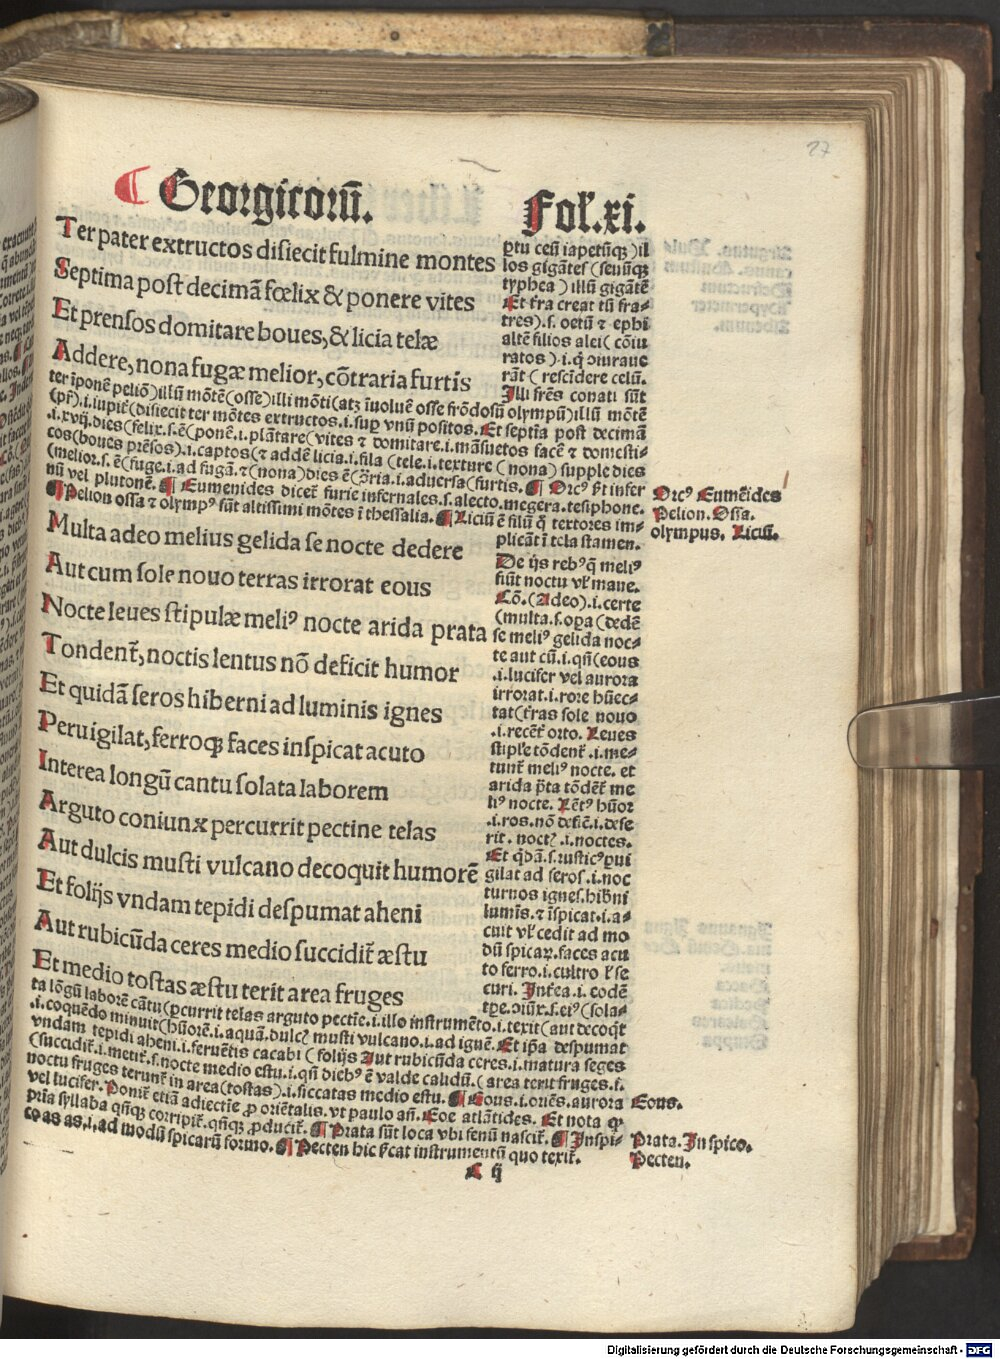 Georgicorū. Fol̄.xi.
Ter pater extructos disiecit fulmine montes
Septima post decimā fœlix & ponere vites
Et prensos domitare boues, & licia telæ
Addere, nona fugæ melior, cōtraria furtis
ꝑtu ceū iapetūqȝ )il
los gigātes (seuūqȝ
typhea ) illū gigātē
Et t̄ra creat tū fra-
tres).s. oetū ⁊ ephi
altē filios aloei( cōiu
ratos ).i.q̇ ↄiuraue
rāt ( rescīdere celū.
Illi fr̄es conati sūt
ter īponē peliō)illū mōtē(osse)illi mōti(atqȝ īuoluē osse frōdosū olympū)illū mōtē
(pr̄).i.iupit̄(disiecit ter mōtes extructos.i.suꝑ vnū positos. Et septīa post decimā
.i.xvij.dies(felix.s.ē(ponē.i.plātare(vites ⁊ domitare.i.māsuetos facē ⁊ domesti-
cos(boues prēsos).i.captos(⁊ addē licia.i.fila (tele.i.texture (nona) supple dies
(melior.s.ē(fuge.i.ad fugā.⁊(nona)dies ē(ↄ̄ria.i.aduersa(furtis. ¶ Orcꝰ p̄t infer
nū vel plutonē. ¶ Eumenides dicēt̄ furie infernales.s.alecto.megera.tesiphone.
¶ Pelion ossa ⁊ olympꝰ sūt altissimi mōtes ī thessalia. ¶ Liciū ē filū q̄ textores im-
plicāt ī tela stamen.
Orcꝰ Eumēides
Pelion. Ossa.
olympus. Liciū.
Multa adeo melius gelida se nocte dedere
Aut cum sole nouo terras irrorat eous
Nocte leues stipulæ meliꝰ nocte arida prata
Tondent̄, noctis lentus nō deficit humor
Et quidā seros hiberni ad luminis ignes
Peruigilat, ferroqȝ faces inspicat acuto
Interea longū cantu solata laborem
Arguto coniunx percurrit pectine telas
Aut dulcis musti vulcano decoquit humorē
Et folijs vndam tepidi despumat aheni
Aut rubicūda ceres medio succidit̄ æstu
Et medio tostas æstu terit area fruges
De ijs rebꝰ q̄ meliꝰ
fiūt noctu vl̄ mane.
Cō.(Adeo).i.certe
(multa.s.oꝑa (dedē
se meliꝰ gelida noc-
te aut cū.i.qn̄(eous
.i.lucifer vel aurora
irrorat.i.rore hūec-
tat(t̄ras sole nouo
.i.recēt̄ orto. Leues
stipl̄e tōdent̄ .i.me-
tunt̄ meliꝰ nocte. et
arida p̄ta tōdēt̄ me
liꝰ nocte. Lētꝰ hūor
.i.ros.nō deficit.i.dese
rit. noctꝭ .i.noctes.
Et q̇dā.s.rusticꝰ ꝑui
gilat ad seros.i.noc
turnos ignes.hibn̄i
lumīs.⁊ īspicat.i.a-
cuit vl̄ cedit ad mo
dū spicaꝝ.faces acu
to ferro.i.cultro l̄ se
curi. Int̄ea.i.eodē
tꝑe.ↄiūx.s.eiꝰ (sola-
ta lōgū laborē cātu (ꝑcurrit telas arguto pectīe.i.illo instrumēto.i.texit(aut decoq̇t
.i.coquēdo minuit(hūorē.i.aquā.dulcꝭ musti vulcano.i.ad ignē. Et ip̄a despumat
vndam tepidi aheni.i.feruētis cacabi ( folijs Aut rubicūda ceres.i.matura seges
(succidit̄.i.metit̄.s.nocte medio estu.i.qn̄ diebꝰ ē valde calidū.( area terit fruges.i.
noctu fruges terunt̄ in area(tostas).i.siccatas medio estu. ¶ Eous.i.oriēs.aurora
vel lucifer. Ponit̄ etiā adiectīe ꝓ oriētalis.vt paulo añ. Eoe atlātides. Et nota ꝙ
prīa syllaba qn̄qȝ corripit̄.qn̄qȝ ꝓducit̄. ¶ Prata sūt loca vbi fenū nascit̄. ¶ Inspi-
co as as.i.ad modū spicarū formo. ¶ Pecten hic sc̄at instrumentū quo texit̄.
Eous.
Prata. Inspico.
Pecten.
C ij
27
Digitalisierung gefördert durch die Deutsche Forschungsgemeinschaft - DFG